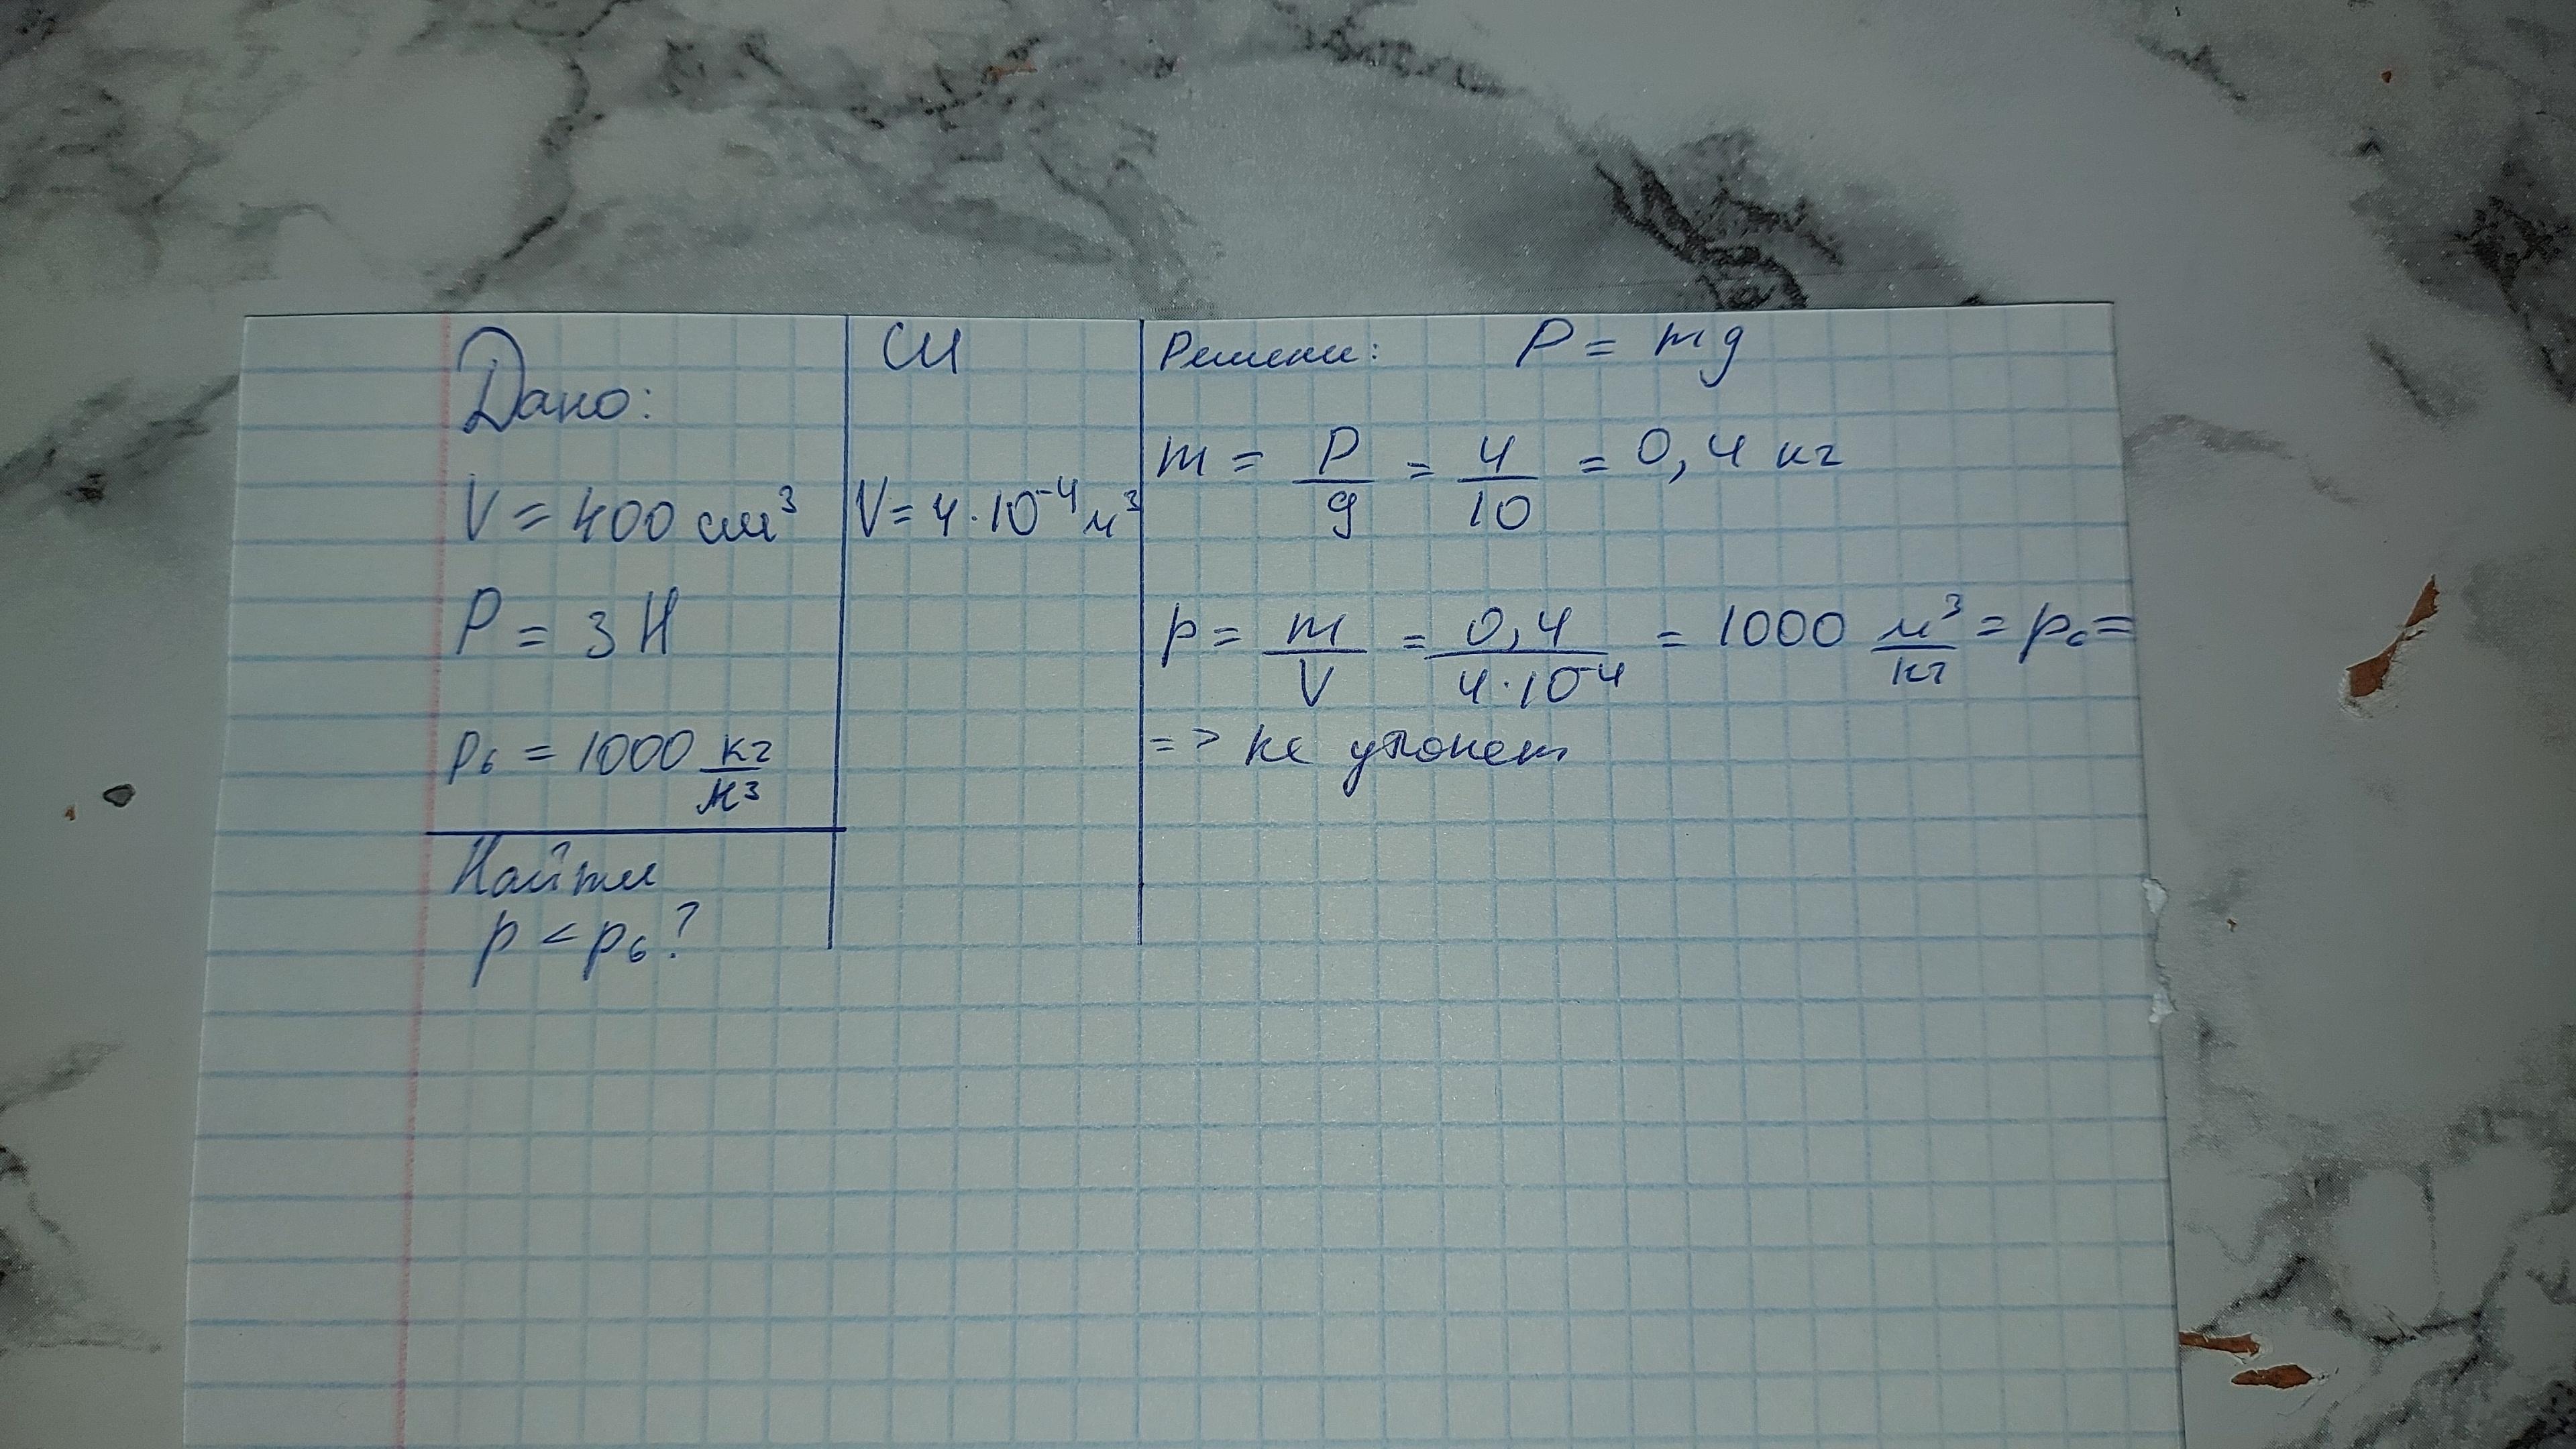 Дано:
V = 400 см³
P = 3 Н
ρв = 1000 кг/м³
Найти
ρ < ρв?
СИ
V = 4·10⁻⁴ м³
Решени: P = mg
m = P/g = 4/10 = 0,4 кг
ρ = m/V = 0,4/4·10⁻⁴ = 1000 м³/кг = ρс =
=> не утонет